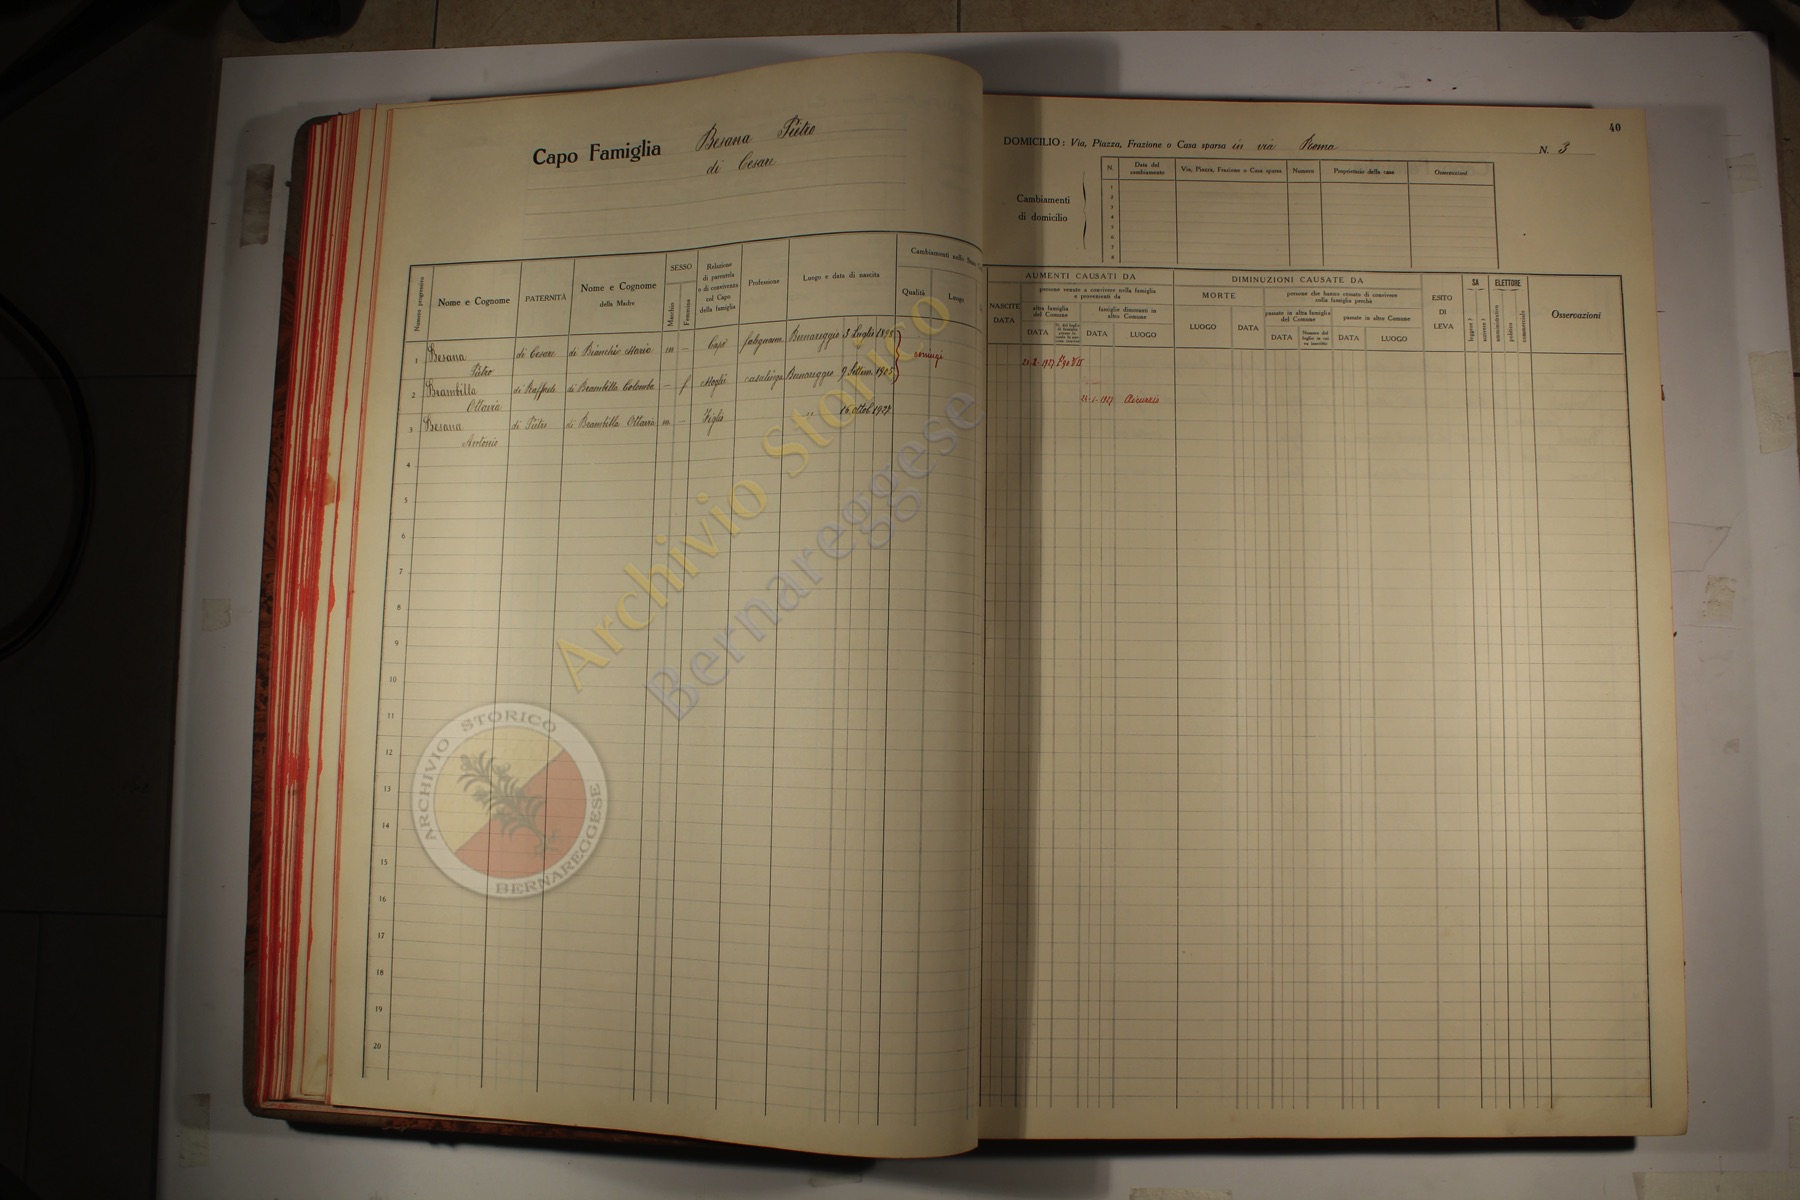 Capo Famiglia Besana Pietro
di Cesare
40
DOMICILIO: Via, Piazza, Frazione o Casa sparsa in via Roma N. 3
Cambiamenti
di domicilio
N. Data del cambiamento Via, Piazza, Frazione o Casa sparsa Numero Proprietario della casa Osservazioni
1
2
3
4
5
6
7
8
Numero progressivo
Nome e Cognome
PATERNITÀ
Nome e Cognome
della Madre
SESSO
Maschio
Femmina
Relazione
di parentela
o di convivenza
col Capo
della famiglia
Professione
Luogo e data di nascita
Cambiamenti nello
Qualità
Luogo
NASCITE
DATA
AUMENTI CAUSATI DA
persone venute a convivere nella famiglia
e provenienti da
altra famiglia
del Comune
DATA
famiglie dimoranti in
altro Comune
DATA
LUOGO
DIMINUZIONI CAUSATE DA
MORTE
LUOGO
DATA
persone che hanno cessato di convivere
colla famiglia perchè
passate in altra famiglia
del Comune
DATA
Numero del
foglio in cui
fu inscritto
passate in altro Comune
DATA
LUOGO
ESITO
DI
LEVA
SA
leggere ?
scrivere ?
ELETTORE
amministrativo
politico
commerciale
Osservazioni
1 Besana di Cesare di Bianchi Maria m - Capo falegname Bernareggio 3 Luglio 1898
Pietro
coniugi
2 Brambilla di Raffaele di Brambilla Colomba - f Moglie casalinga Bernareggio 9 Settem. 1905
Ottavia
24-1-1927 Aicurzio
3 Besana di Pietro di Brambilla Ottavia m - Figlio " 16 ottob. 1927
Antonio
4
5
6
7
8
9
10
11
12
13
14
15
16
17
18
19
20
Archivio Storico
Bernareggese
ARCHIVIO STORICO
BERNAREGGESE